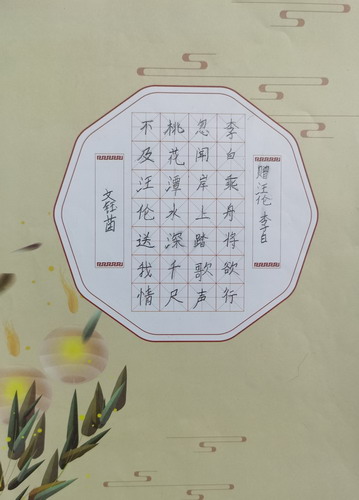 赠汪伦 李白
李白乘舟将欲行
忽闻岸上踏歌声
桃花潭水深千尺
不及汪伦送我情
文钰茵